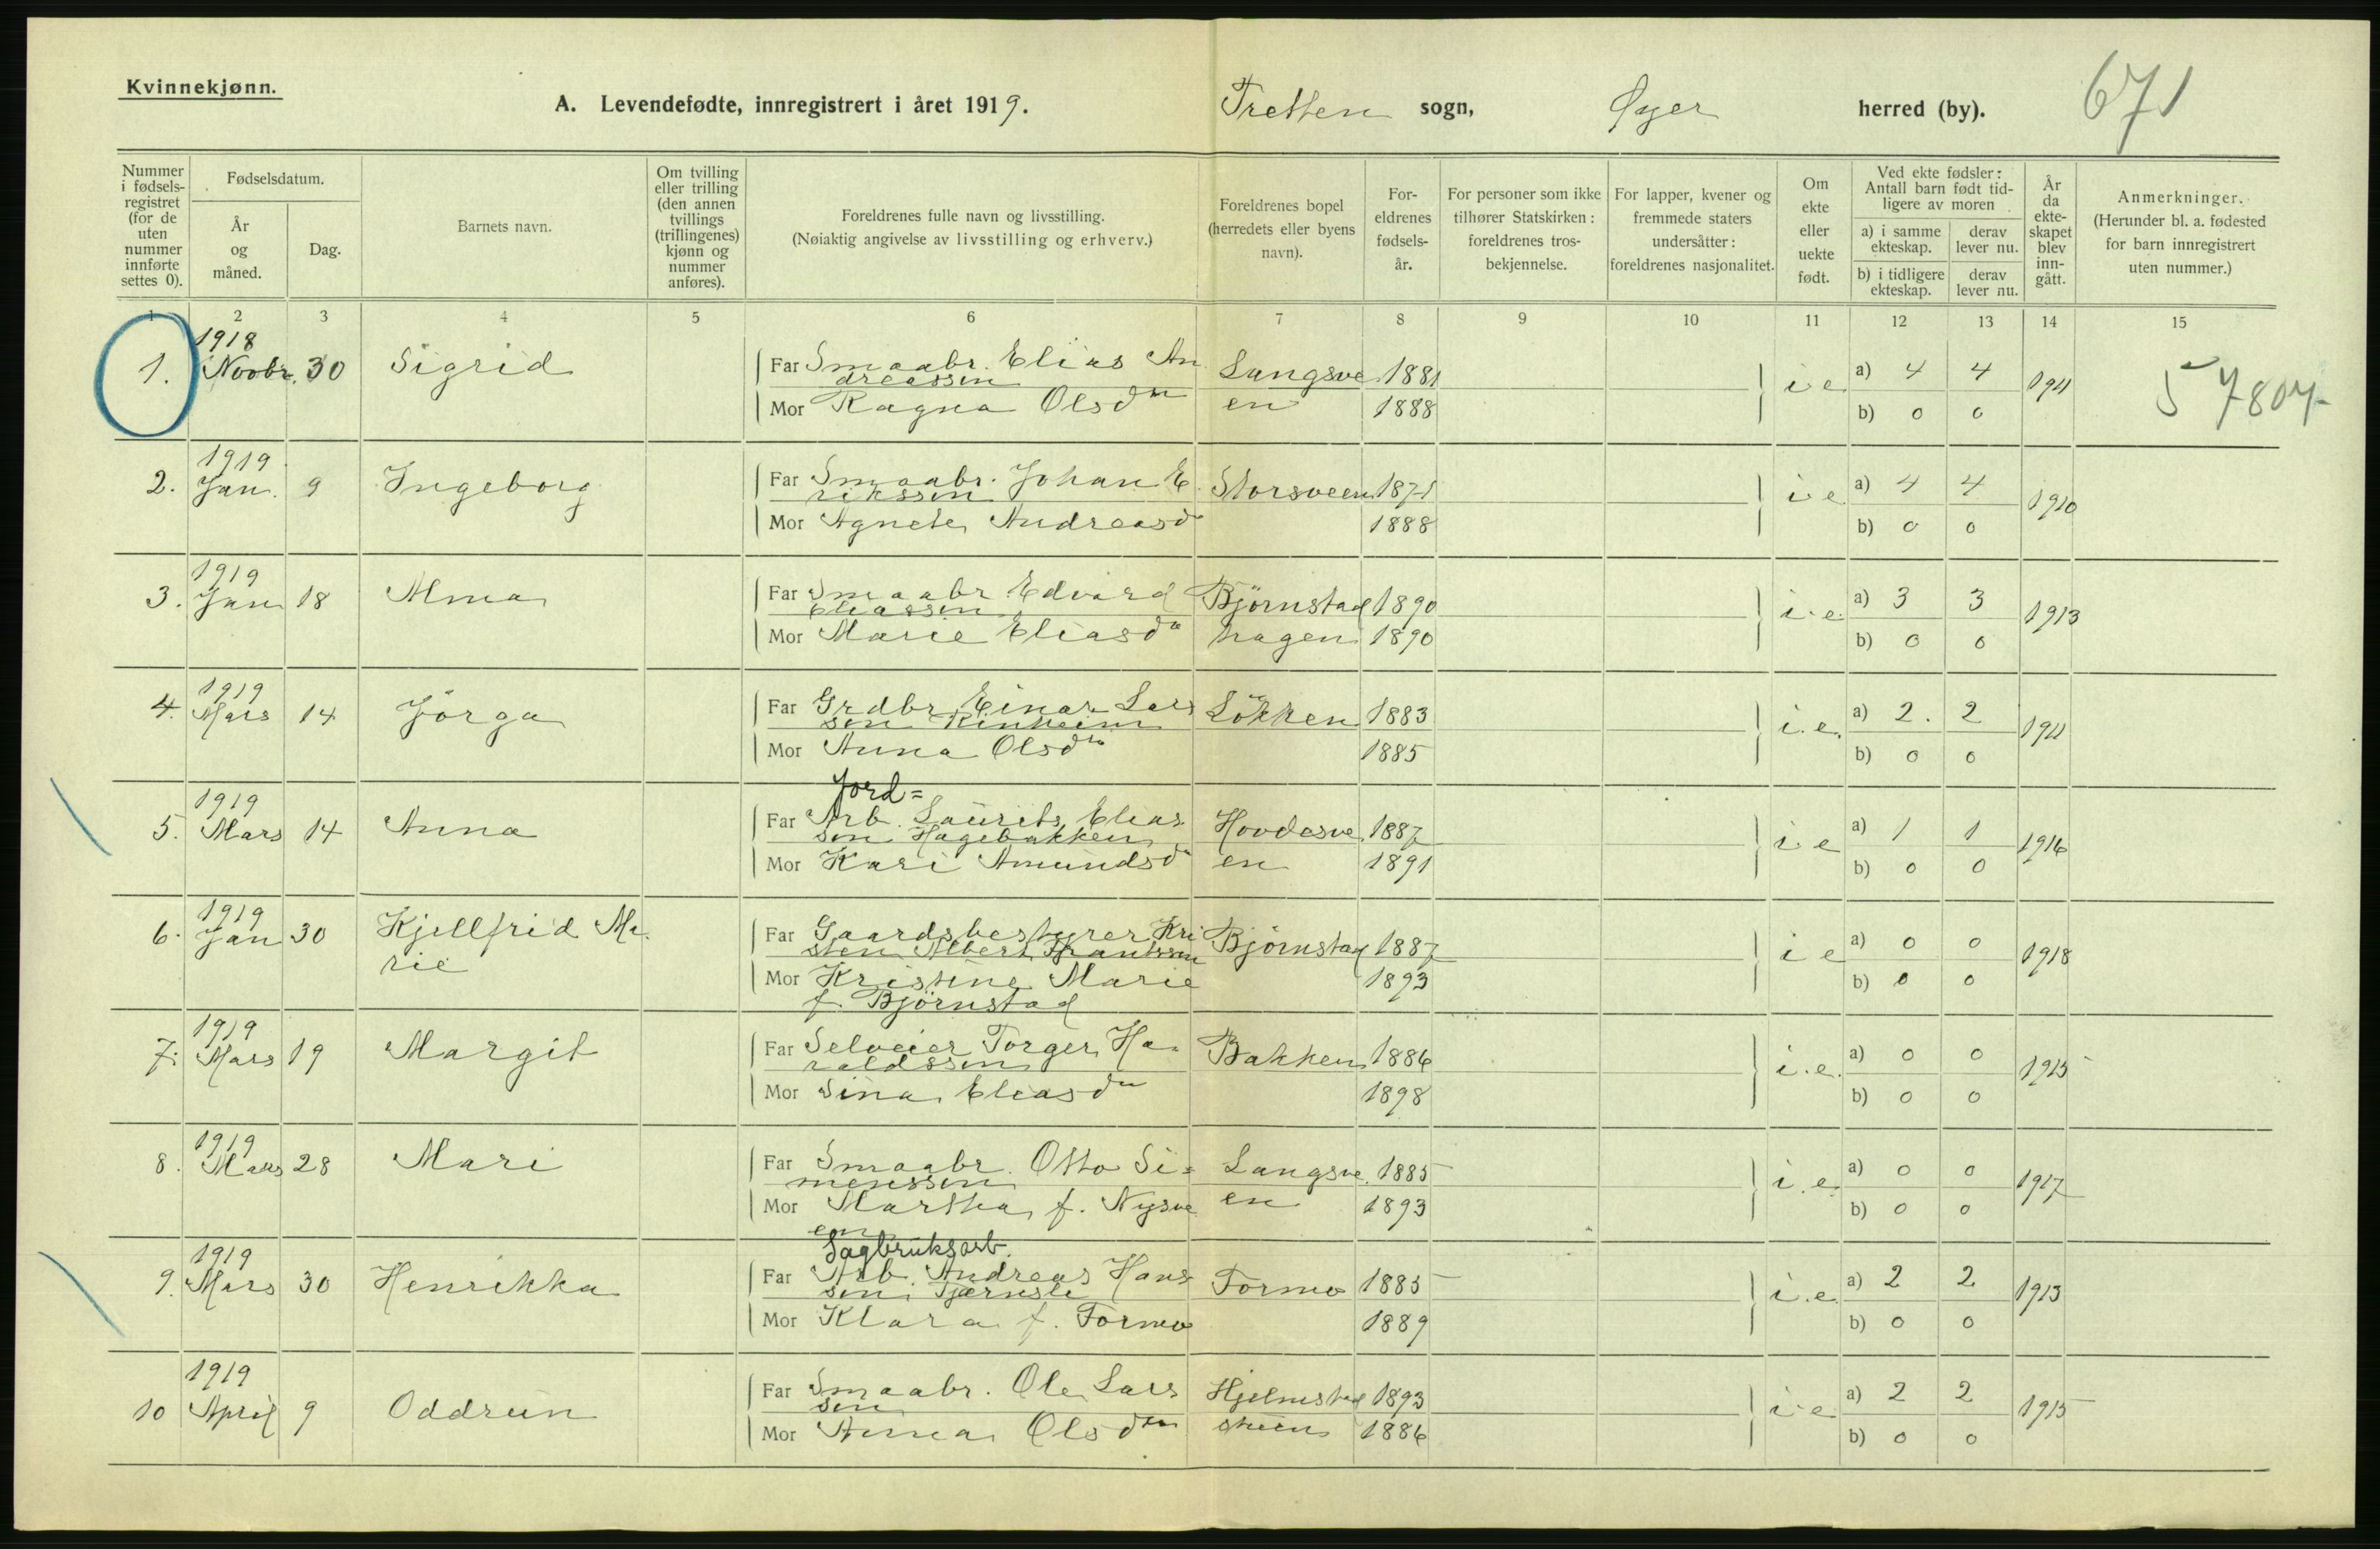 Kvinnekjønn.
A. Levendefødte, innregistrert i året 1919. Tretten sogn, Øyer herred (by). 671
Nummer i fødsels-registret (for de uten nummer innførte settes 0).
Fødselsdatum.
År og måned.
Dag.
Barnets navn.
Om tvilling eller trilling (den annen tvillings (trillingenes) kjønn og nummer anføres).
Foreldrenes fulle navn og livsstilling.
(Nøiaktig angivelse av livsstilling og erhverv.)
Foreldrenes bopel (herredets eller byens navn).
For-eldrenes fødsels-år.
For personer som ikke tilhører Statskirken: foreldrenes tros-bekjennelse.
For lapper, kvener og fremmede staters undersåtter: foreldrenes nasjonalitet.
Om ekte eller uekte født.
Ved ekte fødsler: Antall barn født tid-ligere av moren
a) i samme ekteskap.
derav lever nu.
b) i tidligere ekteskap.
derav lever nu.
År da ekte-skapet blev inn-gått.
Anmerkninger.
(Herunder bl. a. fødested for barn innregistrert uten nummer.)
1 2 3 4 5 6 7 8 9 10 11 12 13 14 15
1918
1. Novbr. 30 Sigrid Far Smaabr. Elias An Langsve 1881 i e a) 4 4 1911 57807
dreassen
Mor Ragna Olsdtr en 1888 b) 0 0
1919
2. Jan. 9 Ingeborg Far Smaabr. Johan E Storsveen 1871 i e. a) 4 4 1910
rikssen
Mor Agnete Andreasdr 1888 b) 0 0
1919
3. Jan 18 Alma Far Smaabr Edvard Björnstad 1890 i. e. a) 3 3 1913
Eliassen
Mor Marie Eliasdtr hagen 1890 b) 0 0
1919
4. Mars 14 Jörga Far Grdbr Einar Lars Lökken 1883 i. e. a) 2. 2 1911
sen Rinheim
Mor Anna Olsdtr 1885 b) 0 0
Jord=
1919
5. Mars 14 Anna Far Arb. Laurits Elias Hovdesve 1887 i e a) 1 1 1916
sen Hagebakken
Mor Kari Amundsdr en 1891 b) 0 0
1919
6. Jan 30 Kjellfrid Ma Far Gaardsbestyrer Kri Björnstad 1887 i e a) 0 0 1918
rie sten Albert Frantssen
Mor Kristine Marie 1893 b) 0 0
f. Björnstad
1919
7. Mars 19 Margit Far Selveier Torger Ha= Bakken 1886 i. e. a) 0 0 1915
raldssen
Mor Sina Eliasdtr 1898 b) 0 0
1919
8. Mars 28 Mari Far Smaabr. Otto Si= Langsve 1885 i. e. a) 0 0 1917
menssen
Mor Martha f. Nysve en 1893 b) 0 0
en
Sagbruksarb.
1919
9. Mars 30 Henrikka Far Arb. Andreas Hans Formo 1885 i. e. a) 2 2 1913
sen Tjernsli
Mor Klara f. Formo 1889 b) 0 0
1919
10 April 9 Oddrun Far Smaabr. Ole Lars Hjelmstad 1893 i e a) 2 2 1915
sen
Mor Anna Olsdtr 1886 b) 0 0